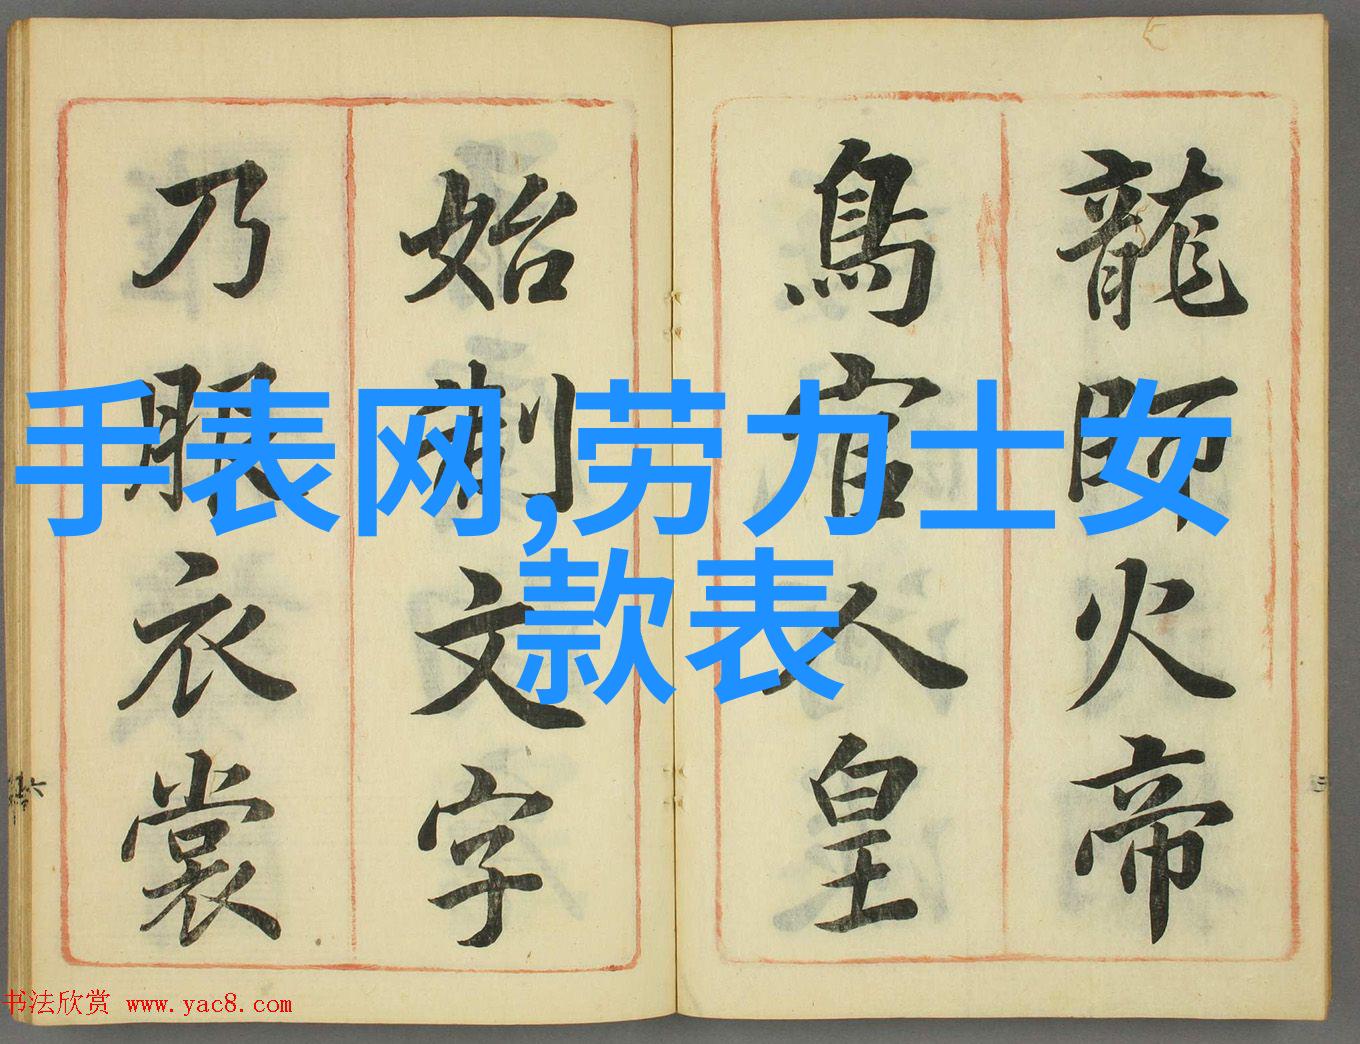 龍師火帝
鳥官人皇
始制文字
乃服衣裳
手表网,劳力士女
款表
书法欣赏 www.yac8.com